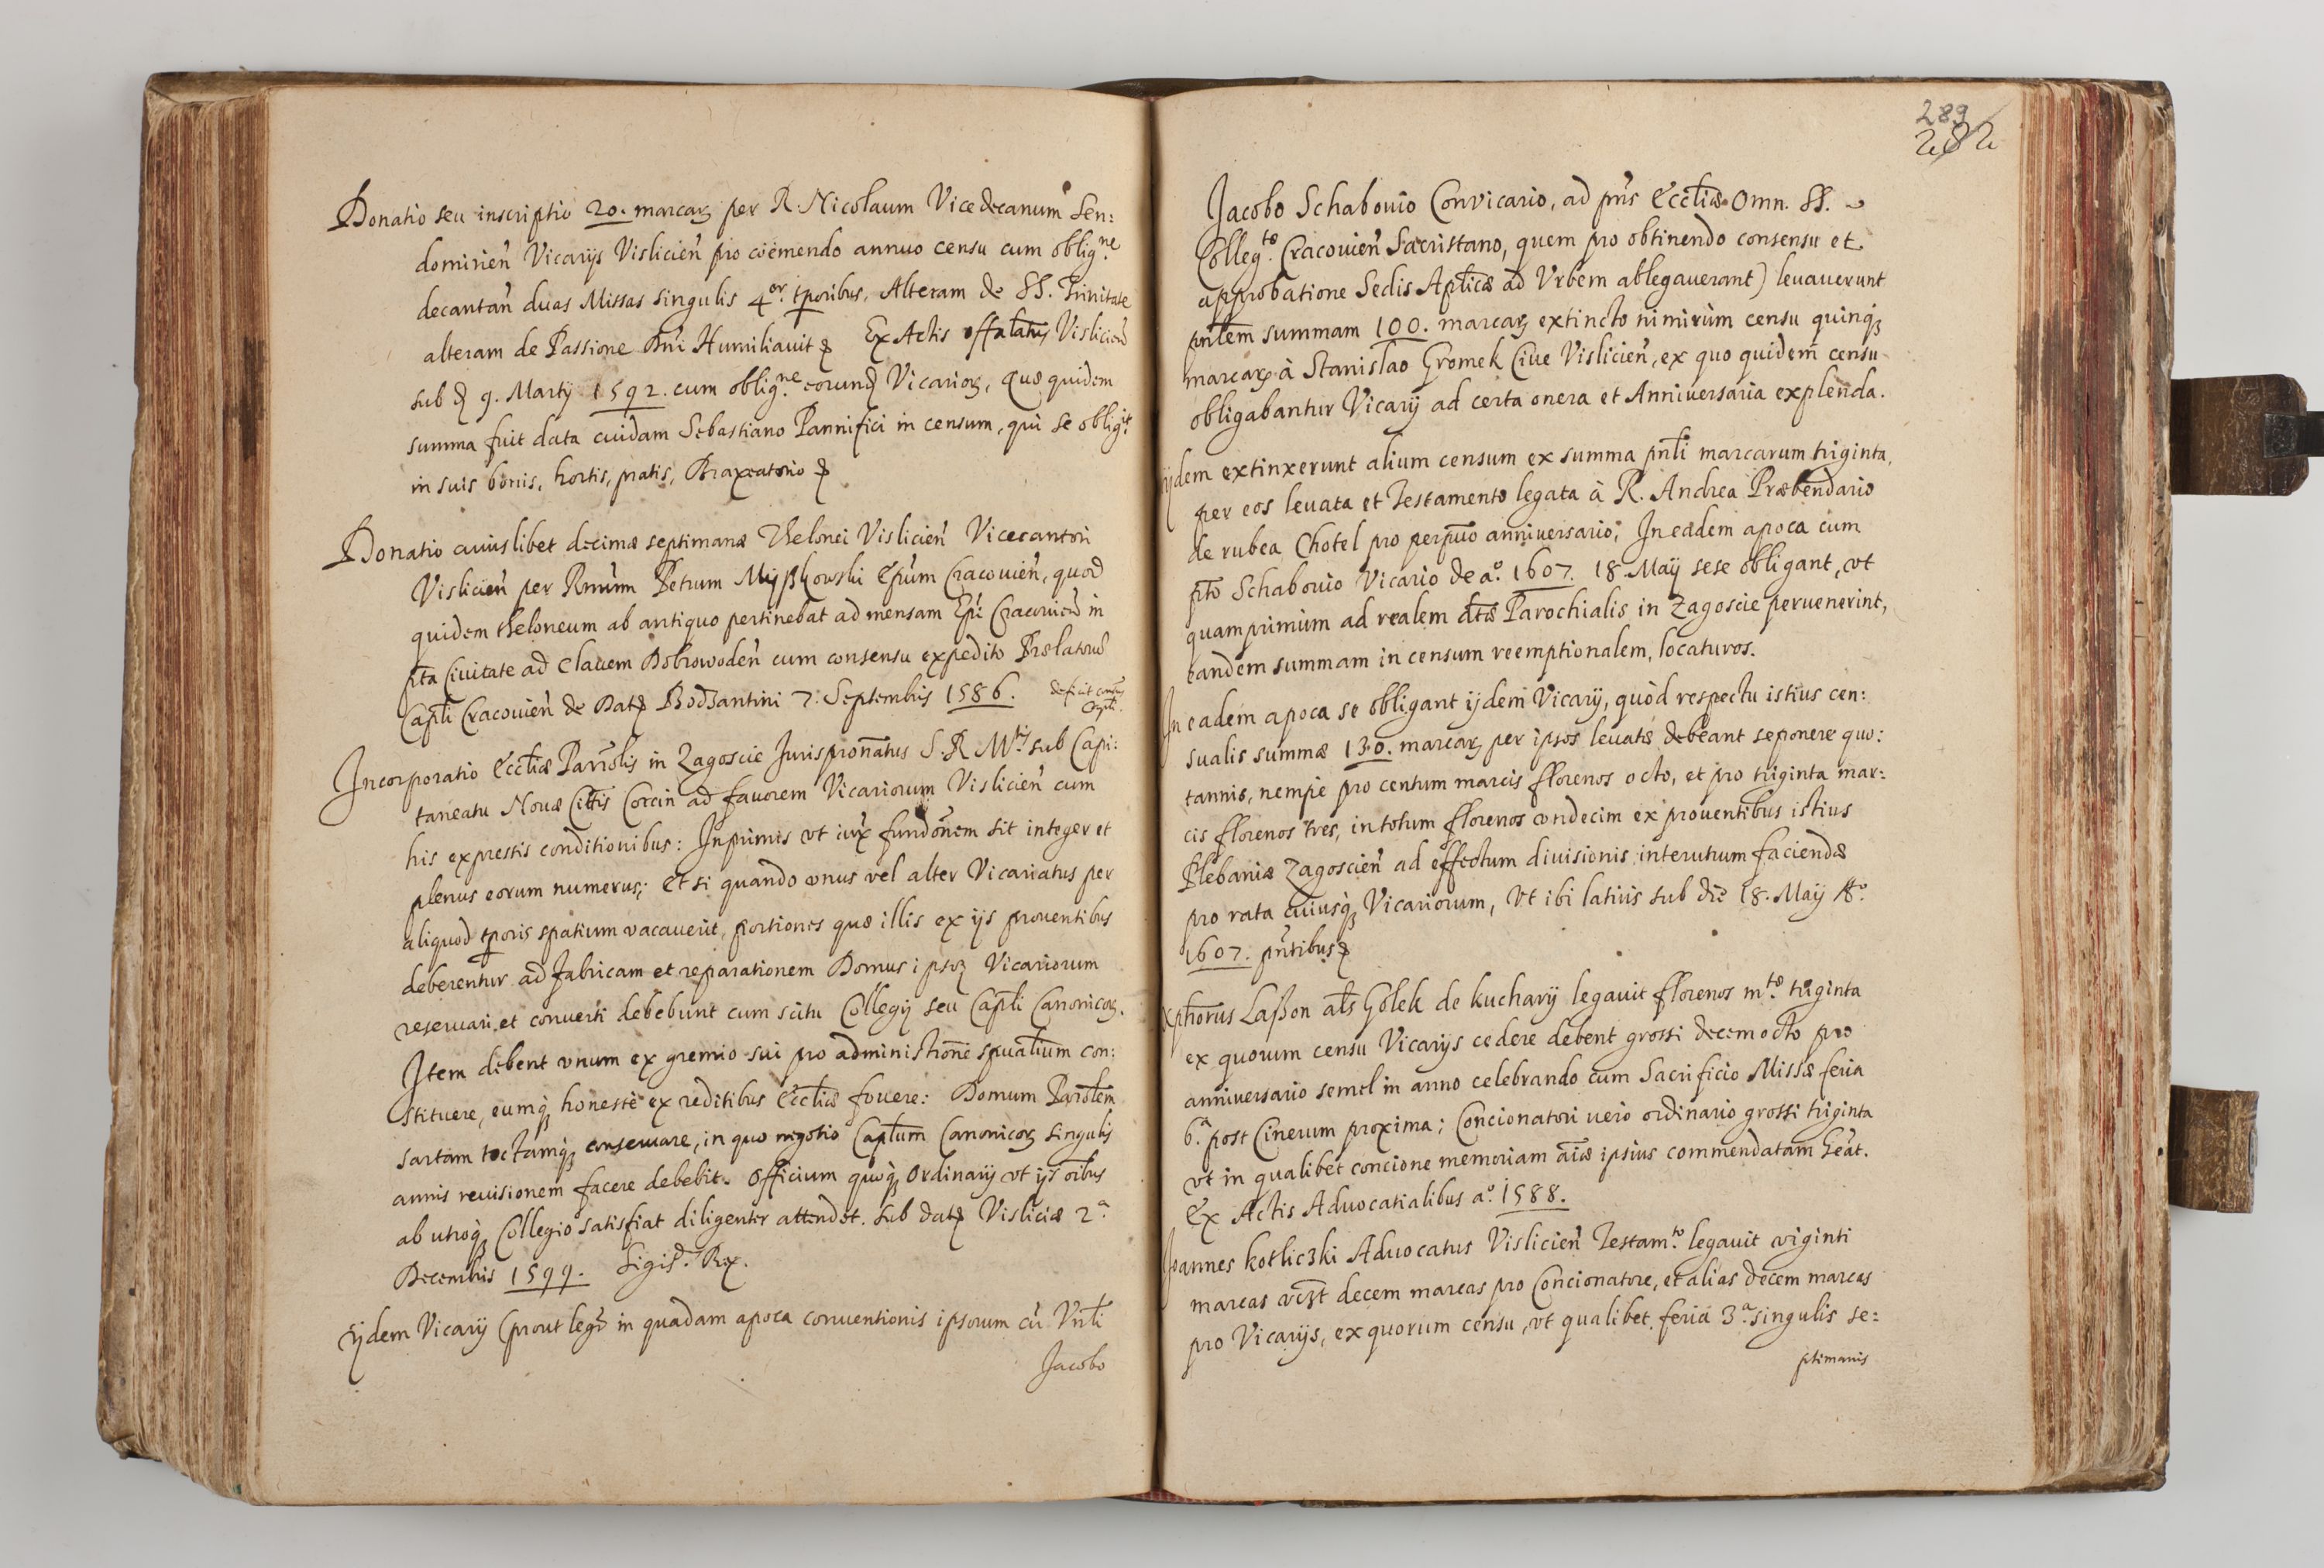 Donatio seu inscriptio 20. marcaꝝ per R. Nicolaum Vicedecanum Sen:
domirień Vicarijs Vislicień pro coëmendo annuo censu cum oblig.ne
decantań duas Missas singulis 4or. tporibus, Alteram de SS. Trinitate
alteram de Passione Dńi Humiliauit ꝛ Ex Actis offalatus Vislicień
sub ꝺ 9. Martij 1592. cum oblig.ne eorunꝺ Vicarioꝝ, Quæ quidem
summa fuit data cuidam Sebastiano Pannifici in censum, qui se obligt.
in suis bonis, hortis, pratis, Braxatorio ꝛ
Donatio cuiuslibet decimæ septimanæ Thelonei Vislicień Vicecantori
Vislicień per Rmum Petrum Myßkowski Epum Cracouień, quod
quidem theloneum ab antiquo pertinebat ad mensam Epi Cracouień in
pta Ciuitate ad Clauem Dobrowodeń cum consensu expedito Prælatorū
Capli Cracouień de Datꝫ Bodzantini 7. Septembris 1586. deficit consens Capli.
Incorporatio Eccliæ Parrolis in Zagoscie Jurispronatus S. R. M.tis sub Capi:
taneatu Nouæ Cittis Corcin ad fauorem Vicariorum Vislicień cum
his expressis conditionibus: Inprimis vt iux fundonem sit integer et
plenus eorum numerus; et si quando vnus vel alter Vicariatus per
aliquod tporis spatium vacauerit, portiones quæ illis ex ijs prouentibus
deberentur ad fabricam et reparationem Domus ipsoꝝ Vicariorum
reseruari et conuerti debebunt cum scitu Collegij seu Capli Canonicoꝝ.
Item debent vnum ex gremio sui pro administrone spualium con:
stituere, eumqꝫ honestè ex reditibus Eccliæ fouere: Domum Parrolem
sartam tectamqꝫ conseruare, in quo negotio Caplum Canonicoꝝ singulis
annis reuisionem facere debebit. Officium quoqꝫ Ordinarij vt ijs oibus
ab utroqꝫ Collegio satisfiat diligenter attendet. Sub datꝫ Visliciæ 2.a
Decembris 1599. Sigisd. Rex.
ijdem Vicarij (prout legr in quadam apoca conuentionis ipsorum cū Vnli
Jacobo
289
282
Jacobo Schabouio Conuicario, ad pńs Eccliæ Omn. SS.
Colleg.tæ Cracouień Sacristano, quem pro obtinendo consensu et
approbatione Sedis Aplicæ ad Vrbem ablegauerant) leuauerunt
pnlem summam 100. marcaꝝ extincto nimirùm censu quinqꝫ
marcaꝝ à Stanislao Gromek Ciue Vislicień, ex quo quidem censu
obligabantur Vicarij ad certa onera et Anniuersaria explenda.
ijdem extinxerunt alium censum ex summa pnli marcarum triginta,
per eos leuata et Testamento legata à R. Andrea Præbendario
de rubea Chotel pro perpuo anniuersario; In eàdem apoca cum
pto Schabouio Vicario de ao. 1607. 18. Maij sese obligant, vt
quamprimùm ad realem dtæ Parochialis in Zagoscie peruenerint,
eandem summam in censum reemptionalem, locaturos.
In eadem apoca se obligant ijdem Vicarij, quòd respectu istius cen:
sualis summæ 130. marcaꝝ per ipsos leuatæ debeant seponere quo:
tannis, nempè pro centum marcis florenos octo, et pro triginta mar:
cis florenos tres, in totum florenos vndecim ex prouentibus istius
Plebaniæ Zagoscień ad effectum diuisionis interutrum faciendæ
pro rata cuiusqꝫ Vicariorum, Vt ibi latius sub die 18. Maij Ao.
1607. pńtibus ꝛ
Xphorus Laßon als Golek de Kucharij legauit florenos m.tæ triginta
ex quorum censu Vicarijs cedere debent grossi decem octo pro
anniuersario semel in anno celebrando cum Sacrificio Missæ feria
6.a post Cinerum proxima; Concionatori uero ordinario grossi triginta
vt in qualibet concione memoriam aiæ ipsius commendatam heat.
Ex Actis Aduocatialibus ao. 1588.
Joannes Kotliczki Aduocatus Vislicień Testam.to legauit viginti
marcas vczt decem marcas pro Concionatore, et alias decem marcas
pro Vicarijs, ex quorum censu, vt qualibet feria 3.a singulis se:
ptimanis